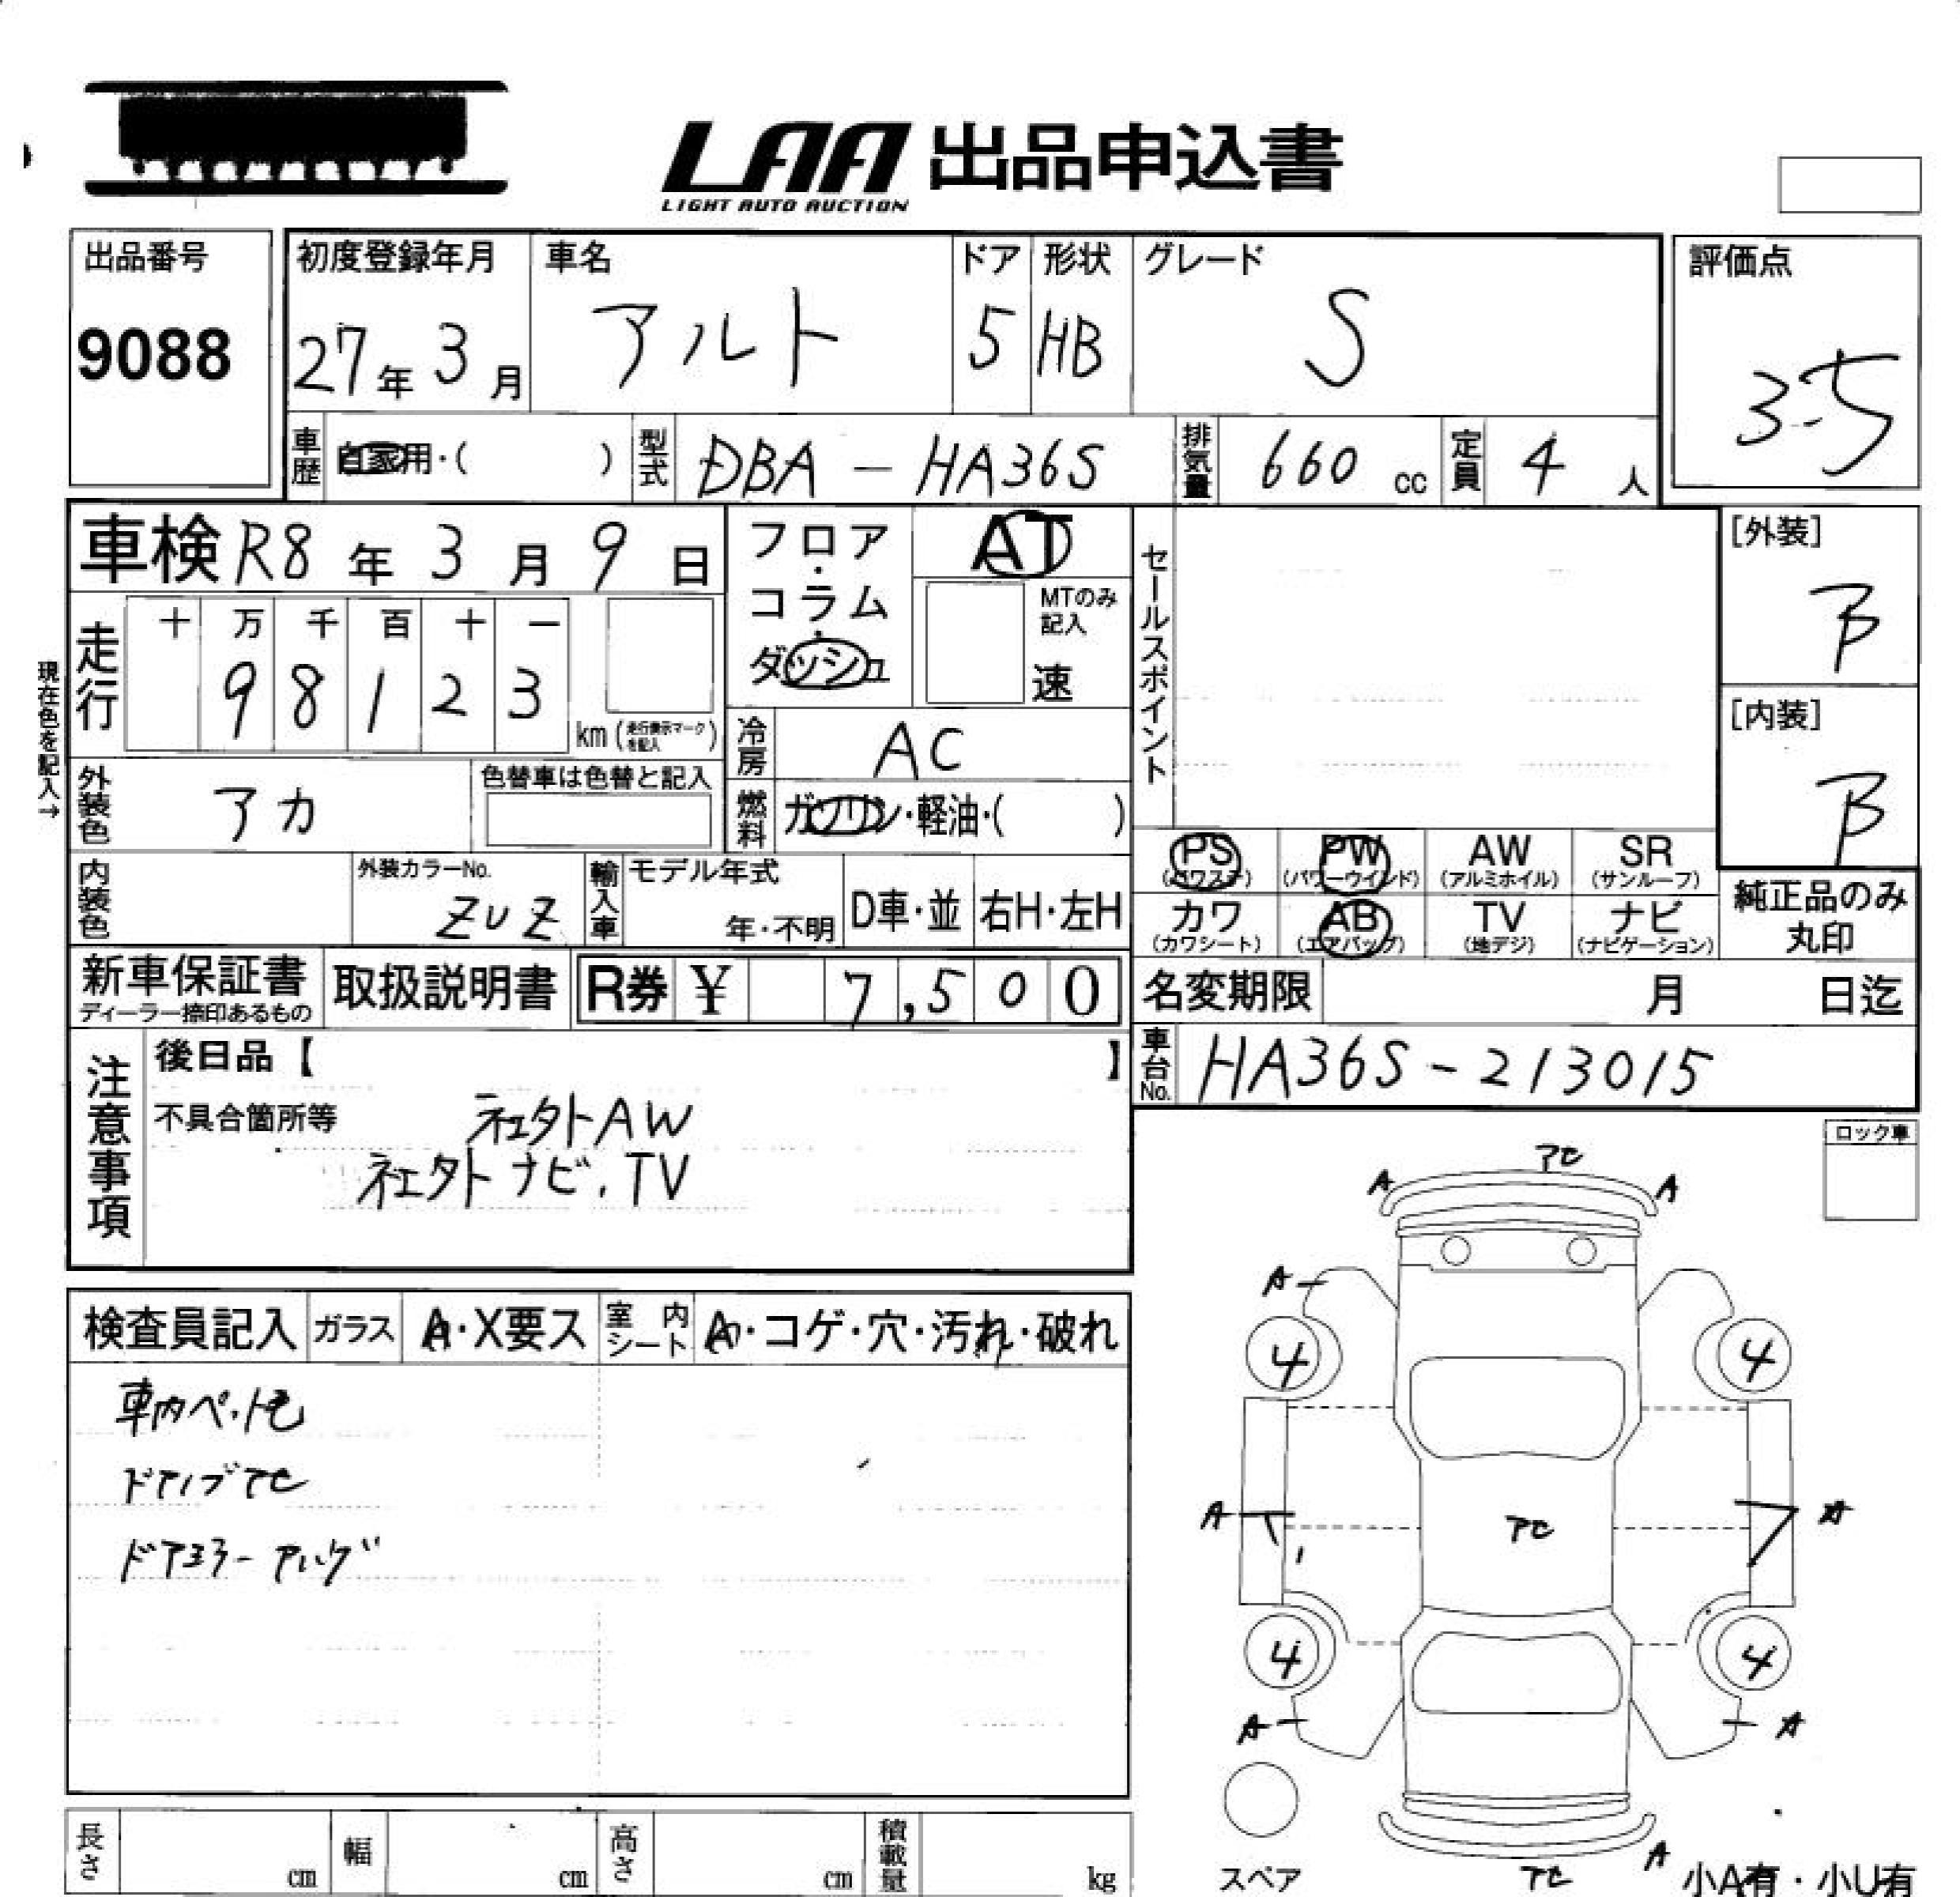 LAA 出品申込書
LIGHT AUTO AUCTION
出品番号
9088
初度登録年月
27年 3月
車名
アルト
ドア
5
形状
HB
グレード
S
評価点
3.5
車歴 自家用・( )
型式 DBA - HA36S
排気量 660 cc
定員 4 人
車検 R8年 3月 9日
フロア・コラム・ダッシュ
AT
MTのみ記入
速
セールスポイント
[外装]
B
[内装]
B
現在色を記入→
走行
十 万 千 百 十 一
9 8 1 2 3
km (走行表示マークを記入)
冷房 AC
外装色 アカ
色替車は色替と記入
燃料 ガソリン・軽油・( )
内装色
外装カラーNo.
ZUZ
輸入車
モデル年式
年・不明
D車・並
右H・左H
PS (パワステ)
PW (パワーウインド)
AW (アルミホイル)
SR (サンルーフ)
カワ (カワシート)
AB (エアバッグ)
TV (地デジ)
ナビ (ナビゲーション)
純正品のみ丸印
新車保証書
ディーラー捺印あるもの
取扱説明書
R券 ¥ 7,500
名変期限 月 日迄
車台No. HA36S-213015
注意事項
後日品【 】
不具合箇所等
社外AW
社外ナビ.TV
ロック車
検査員記入
ガラス A・X要ス
室内シート A・コゲ・穴・汚れ・破れ
車内ペット毛
ドアノブ
ドアミラー
A A
A
4 4
A A
4 4
A A
A
スペア
小A有・小U有
長さ cm
幅 cm
高さ cm
積載量 kg